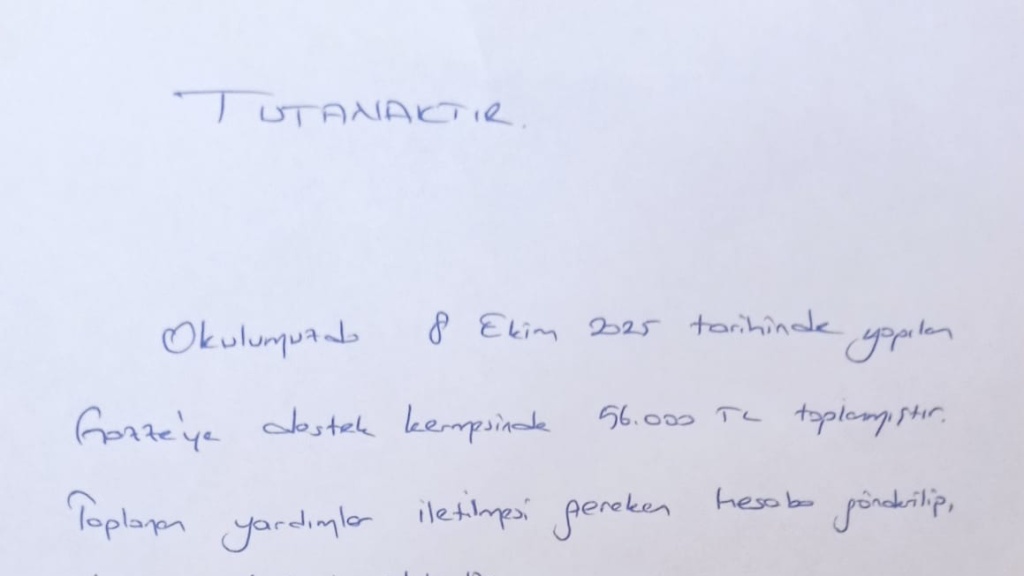 TUTANAKTIR.
Okulumuzda 8 Ekim 2025 tarihinde yapılan
Gazze'ye destek kermesinde 56.000 TL toplamıştır.
Toplanan yardımlar iletilmesi gereken hesaba gönderilip,